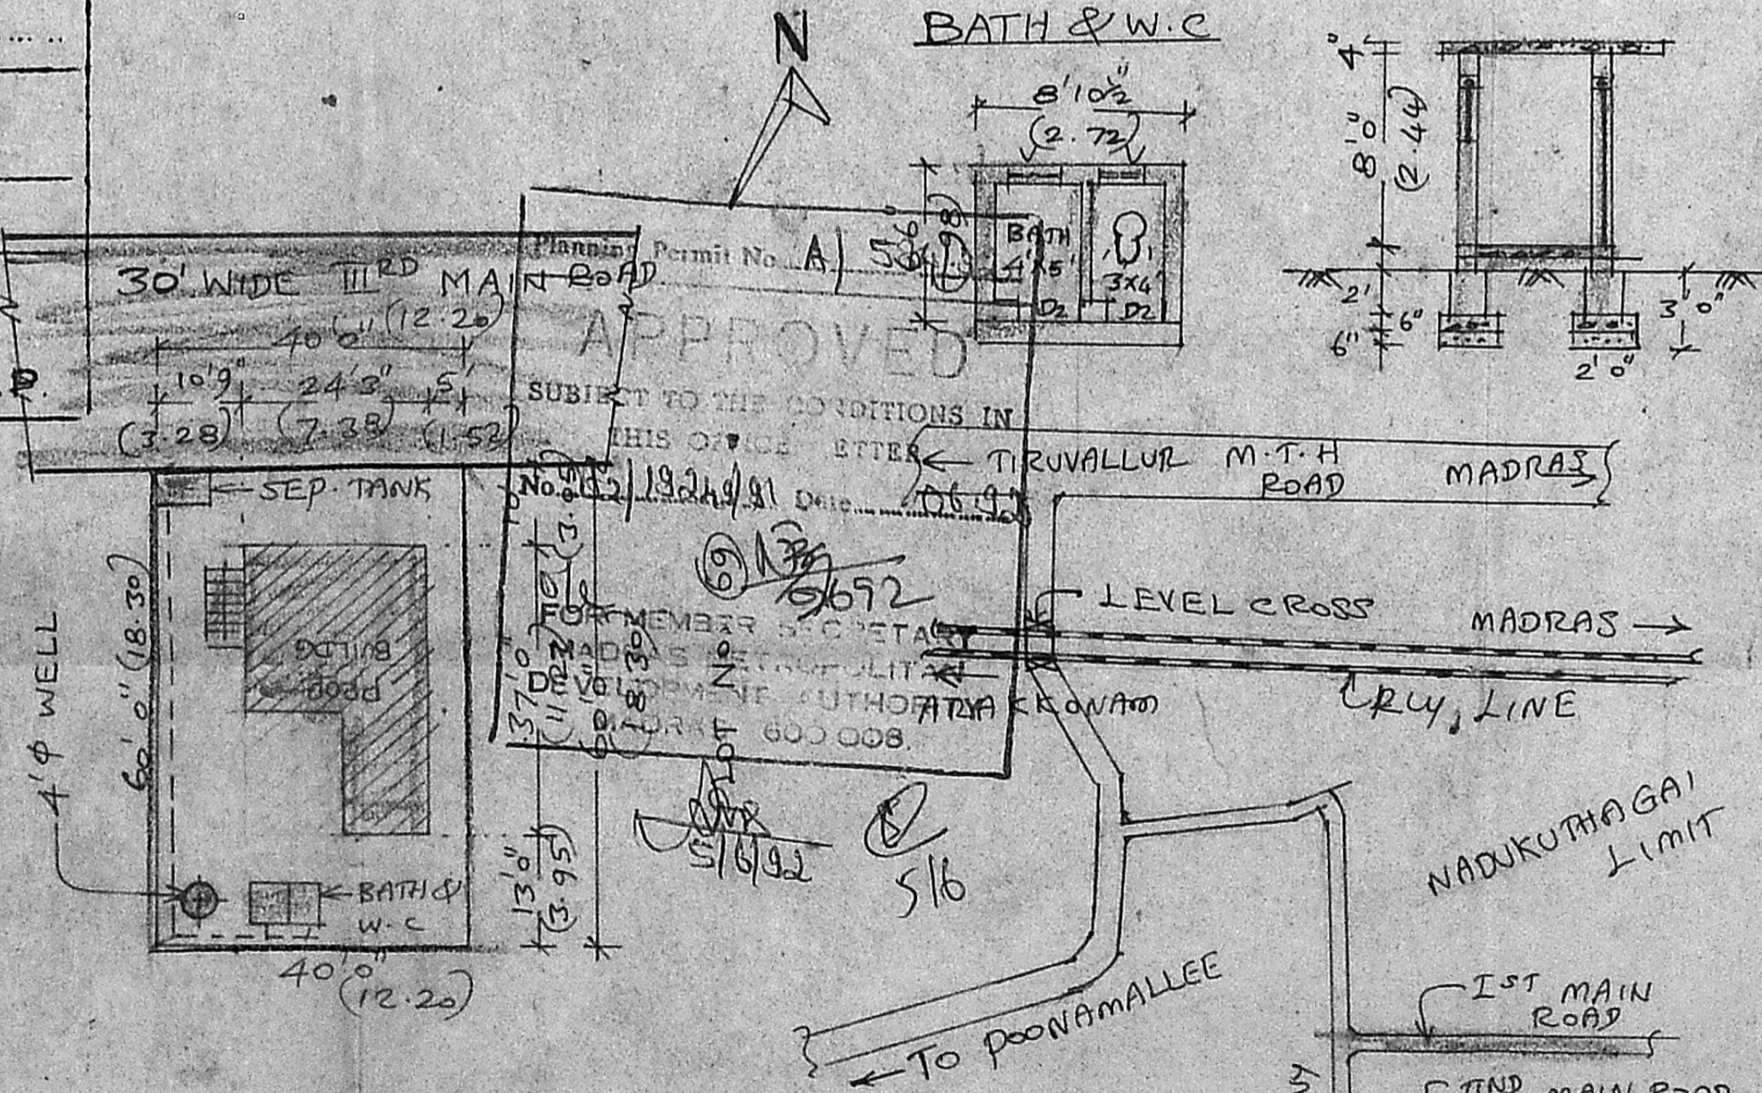 N
BATH & W.C
8'10½"
(2.72)
BATH
4'X5'
3X4'
D2
D2
4"
8'0"
(2.44)
2'
6"
6"
3'0"
2'0"
30' WIDE IIIRD MAIN ROAD
40'0" (12.20)
10'9"
24'3"
5'
(3.28)
(7.38)
(1.52)
SEP. TANK
60'0" (18.30)
4'Φ WELL
PROP
BUILDG
BATH &
W.C
40'0"
(12.20)
37'0"
13'0"
(3.95)
Planning Permit No. A/
APPROVED
SUBJECT TO THE CONDITIONS IN
THIS OFFICE LETTER
No. Date
FOR MEMBER SECRETARY
MADRAS METROPOLITAN
DEVELOPMENT AUTHORITY
MADRAS 600 008.
PLOT NO
5/6/92
5/6
← TIRUVALLUR M.T.H ROAD MADRAS
LEVEL CROSS
MADRAS →
RLY, LINE
NADUKUTHAGAI
LIMIT
← TO POONAMALLEE
IST MAIN
ROAD
IIND MAIN ROAD